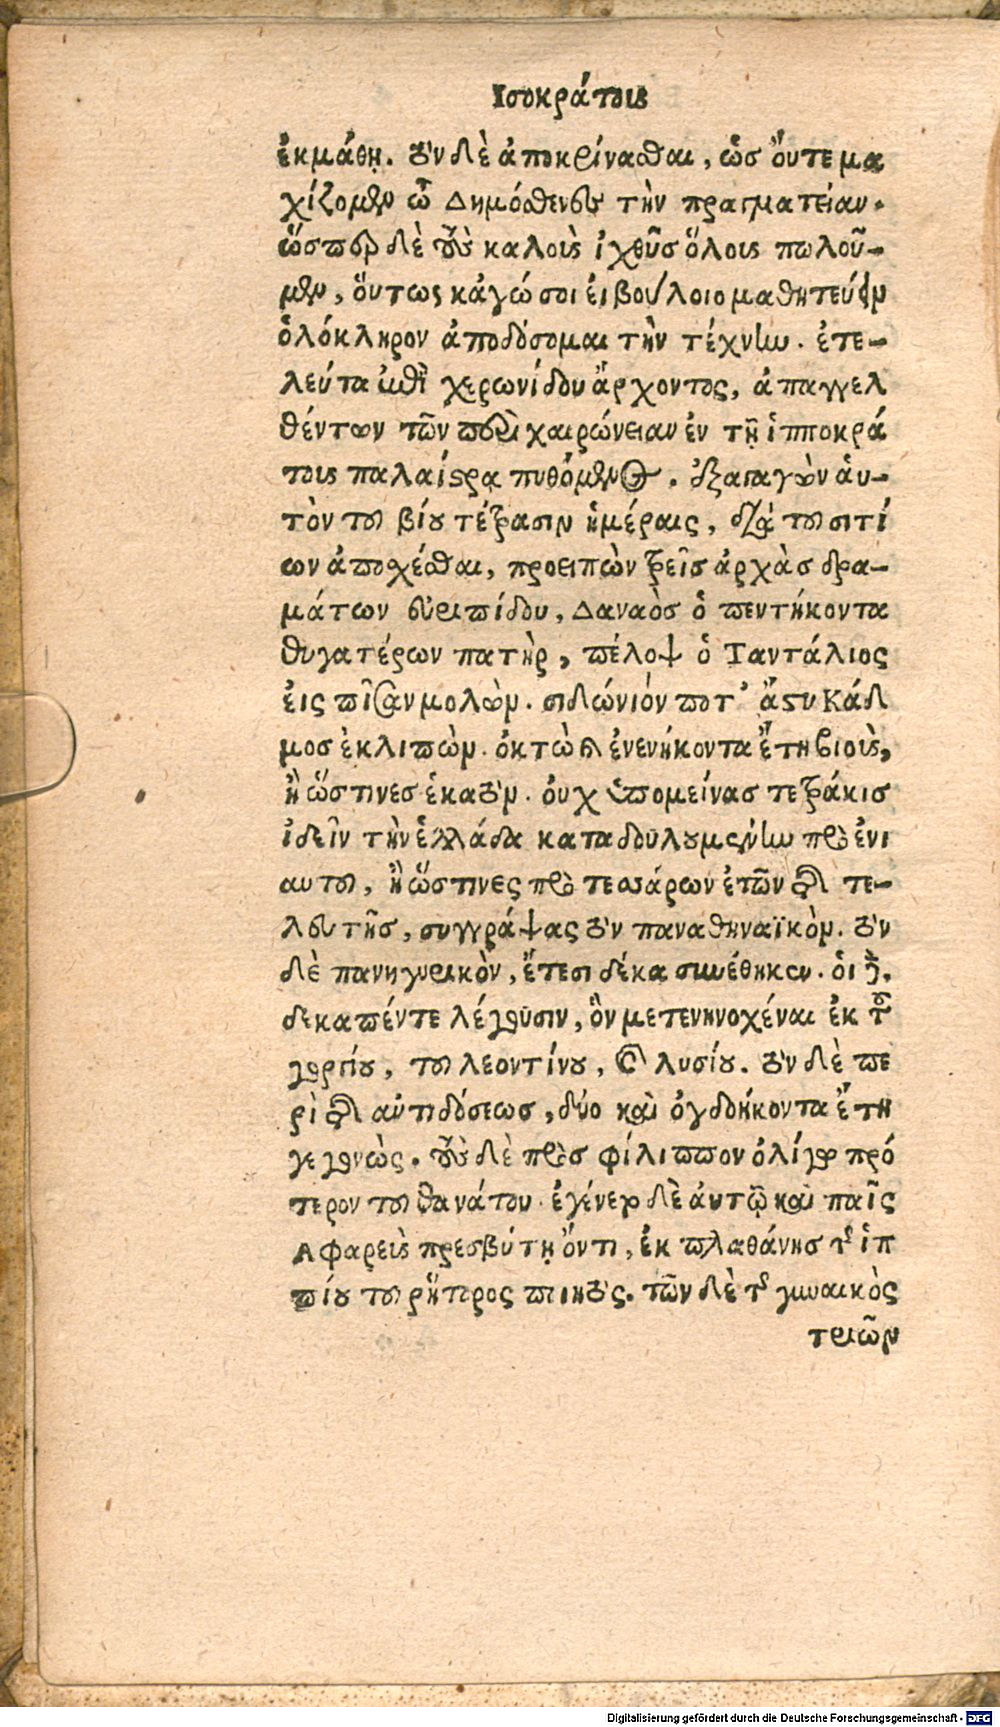 Ἰσοκράτους
ἐκμάθῃ. τὸν δὲ ἀποκρίνασθαι, ὡς ὄυτε μα
χίζομεν ὦ Δημόσθενες τὴν πραγματείαν.
ὥσπερ δὲ τοὺς καλοὺς ἰχθῦς ὅλους πωλοῦ-
μεν, ὅυτως κἀγώ σοι ἐι βούλοιο μαθητεύειν
ὁλόκληρον ἀποδόσομαι τὴν τέχνην. ἐτε-
λεύτα ἐπὶ χερωνίδου ἄρχοντος, ἀπαγγελ
θέντων τῶν περὶ χαιρώνειαν ἐν τῇ ἱπποκρά
τους παλαίστρᾳ πυθόμενος. ἐξαγαγὼν ἁυ-
τὸν τοῦ βίου τέτρασιν ἡμέραις, διὰ τοῦ σιτί
ων ἀποχέσθαι, προειπὼν τρεῖς ἀρχὰς δρα-
μάτων ευριπίδου, Δαναὸς ὁ πεντήκοντα
θυγατέρων πατὴρ, πέλοψ ὁ Ταντάλιος
ἐις πῖσαν μολών. σιδώνιόν ποτ’ ἄστυ Κάδ
μος ἐκλιπών. ὀκτὼ καὶ ἐνενήκοντα ἔτη βιοὺς,
ἢ ὥστινες ἑκατόν. ὀυχ ὑπομείνας τετράκις
ἰδεῖν τὴν ἑλλάδα καταδουλουμένην πρὸ ἐνι
αυτοῦ, ἢ ὥστινες πρὸ τεσσάρων ἐτῶν τῆς τε-
λευτῆς, συγγράψας τὸν παναθηναϊκόν. τὸν
δὲ πανηγυρικὸν, ἔτεσι δέκα συνέθηκεν. ὁι δὲ.
δεκαπέντε λέγουσιν, ὃν μετενηνοχέναι ἐκ τοῦ
γοργίου, τοῦ λεοντίνου, καὶ λυσίου. τὸν δὲ πε
ρὶ τῆς ἀντιδόσεως, δύο καὶ ὀγδοήκοντα ἔτη
γεγονὼς. τοὺς δὲ πρὸς φίλιππον ὀλίγον πρό
τερον τοῦ θανάτου. ἐγένετο δὲ ἀυτῷ καὶ παῖς
Ἀφαρεὺς πρεσβύτῃ ὄντι, ἐκ πλαθάνης τῆς ἱπ
πίου τοῦ ῥήτορος ποιητός. τῶν δὲ τῆς γυναικὸς
τριῶν
Digitalisierung gefördert durch die Deutsche Forschungsgemeinschaft - DFG